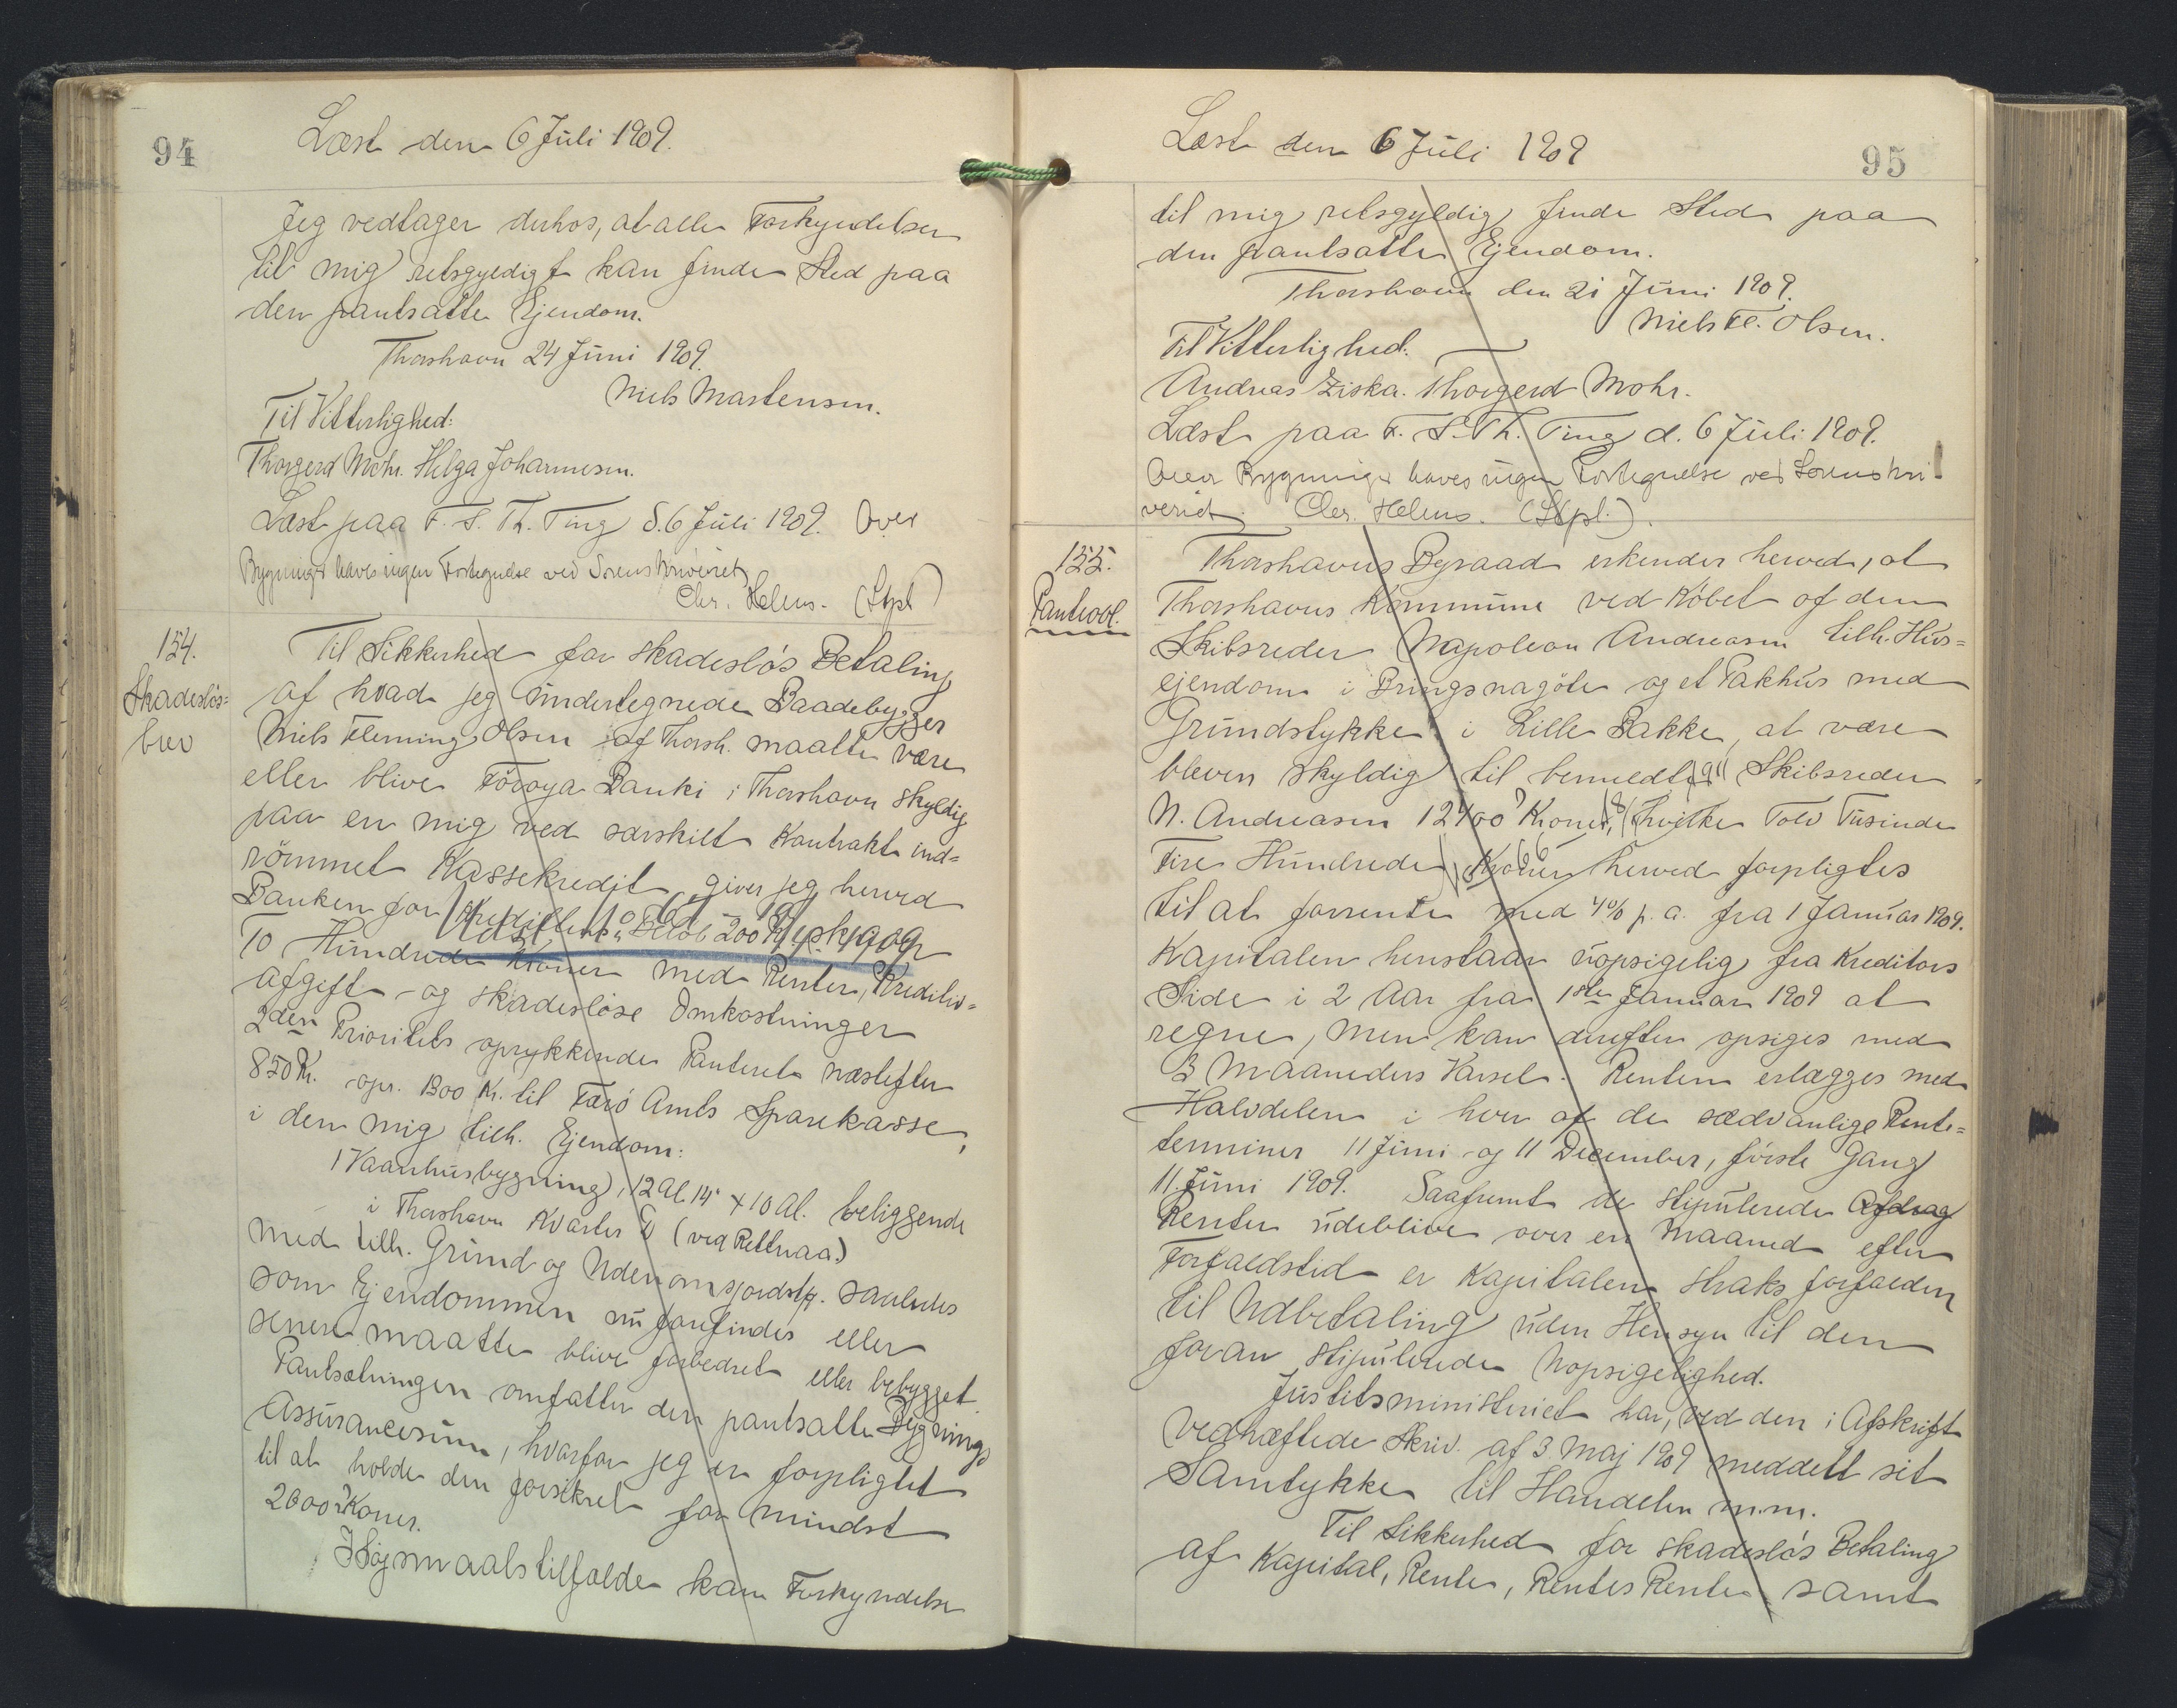 94
Læst den 6 Juli 1909.
Jeg vedtager derhos, at alle Forkyndelser
til mig retsgyldigt kan finde Sted paa
den pantsatte Ejendom.
Thorshavn 24 Juni 1909.
Niels Mortensen.
Til Vitterlighed:
Thorgerd Mohr. Helga Johannesen.
Læst paa F. S. Th. Ting d. 6 Juli 1909. Over
Bygninger haves ingen Fortegnelse ved Sorenskriveriet
Chr. Helms. (Stpl)
154.
Skadesløs=
brev
Til Sikkerhed for skadesløs Betaling
af hvad jeg undertegnede Baadebygger
Niels Fleming Olsen af Thorsh. maatte være
eller blive Föroya Banki i Thorshavn skyldig
paa en mig ved særskilt Kontrakt ind=
römmet Kassekredit, giver jeg herved
Banken for Kredittens Beløb 200 Kr
To Hundrede Kroner med Renter, Krediliv=
afgift og skadesløse Omkostninger
2den Prioritets oprykkende Panteret næstefter
850 Kr. opr. 1300 Kr. til Færø Amts Sparekasse,
i den mig tilh. Ejendom:
1 Vaanhusbygning, 12 Al. 14" x 10 Al. beliggende
i Thorshavn Kvarter D (ved Rættraa)
med tilh. Grund og Udenomsjordstk. saaledes
som Ejendommen nu forefindes eller
senere maatte blive forbedret eller bebygget.
Pantsætningen omfatter den pantsatte Bygnings
Assurancesum, hvorfor jeg er forpligtet
til at holde den forsikret for mindst
2600 Kroner.
I Søgsmaalstilfælde kan Forkyndelse
95
Læst den 6 Juli 1909
til mig retsgyldig finde Sted paa
den pantsatte Ejendom.
Thorshavn den 21 Juni 1909.
Niels Fl. Olsen.
Til Vitterlighed:
Andreas Ziska. Thorgerd Mohr.
Læst paa F. S. Th. Ting d. 6 Juli 1909.
Over Bygninger haves ingen Fortegnelse ved Sorenskri-
veriet. Chr. Helms. (Stpl.).
155.
Panteobl.
Thorshavns Byraad erkender herved, at
Thorshavns Kommune ved Købet af den
Skibsreder Napoleon Andreasen tilh. Hus=
ejendom i Bringsnagöte og et Pakhus med
Grundstykke i Lille Bakke, at være
bleven skyldig til bemeldte Skibsreder
N. Andreasen 12400 Kroner, hvilke Tolv Tusinde
Fire Hundrede Kroner herved forpligtes
til at forrente med 4% p. a. fra 1 Januar 1909.
Kapitalen henstaar uopsigelig fra Kreditors
Side i 2 Aar fra 1ste Januar 1909 at
regne, men kan derefter opsiges med
3 Maaneders Varsel. Renten erlægges med
Halvdelen i hver af de sædvanlige Rente=
terminer 11 Juni og 11 December, første Gang
11. Juni 1909. Saafremt de stipulerede Afdrag
Renter udeblive over en Maaned efter
Forfaldstid er Kapitalen straks forfalden
til Udbetaling uden Hensyn til den
foran stipulerede Uopsigelighed.
Justitsministeriet har, ved den i Afskrift
vedhæftede Skriv. af 3 Maj 1909 meddelt sit
Samtykke til Handelen m.m.
Til Sikkerhed for skadesløs Betaling
af Kapital, Renter, Rentes Rente samt